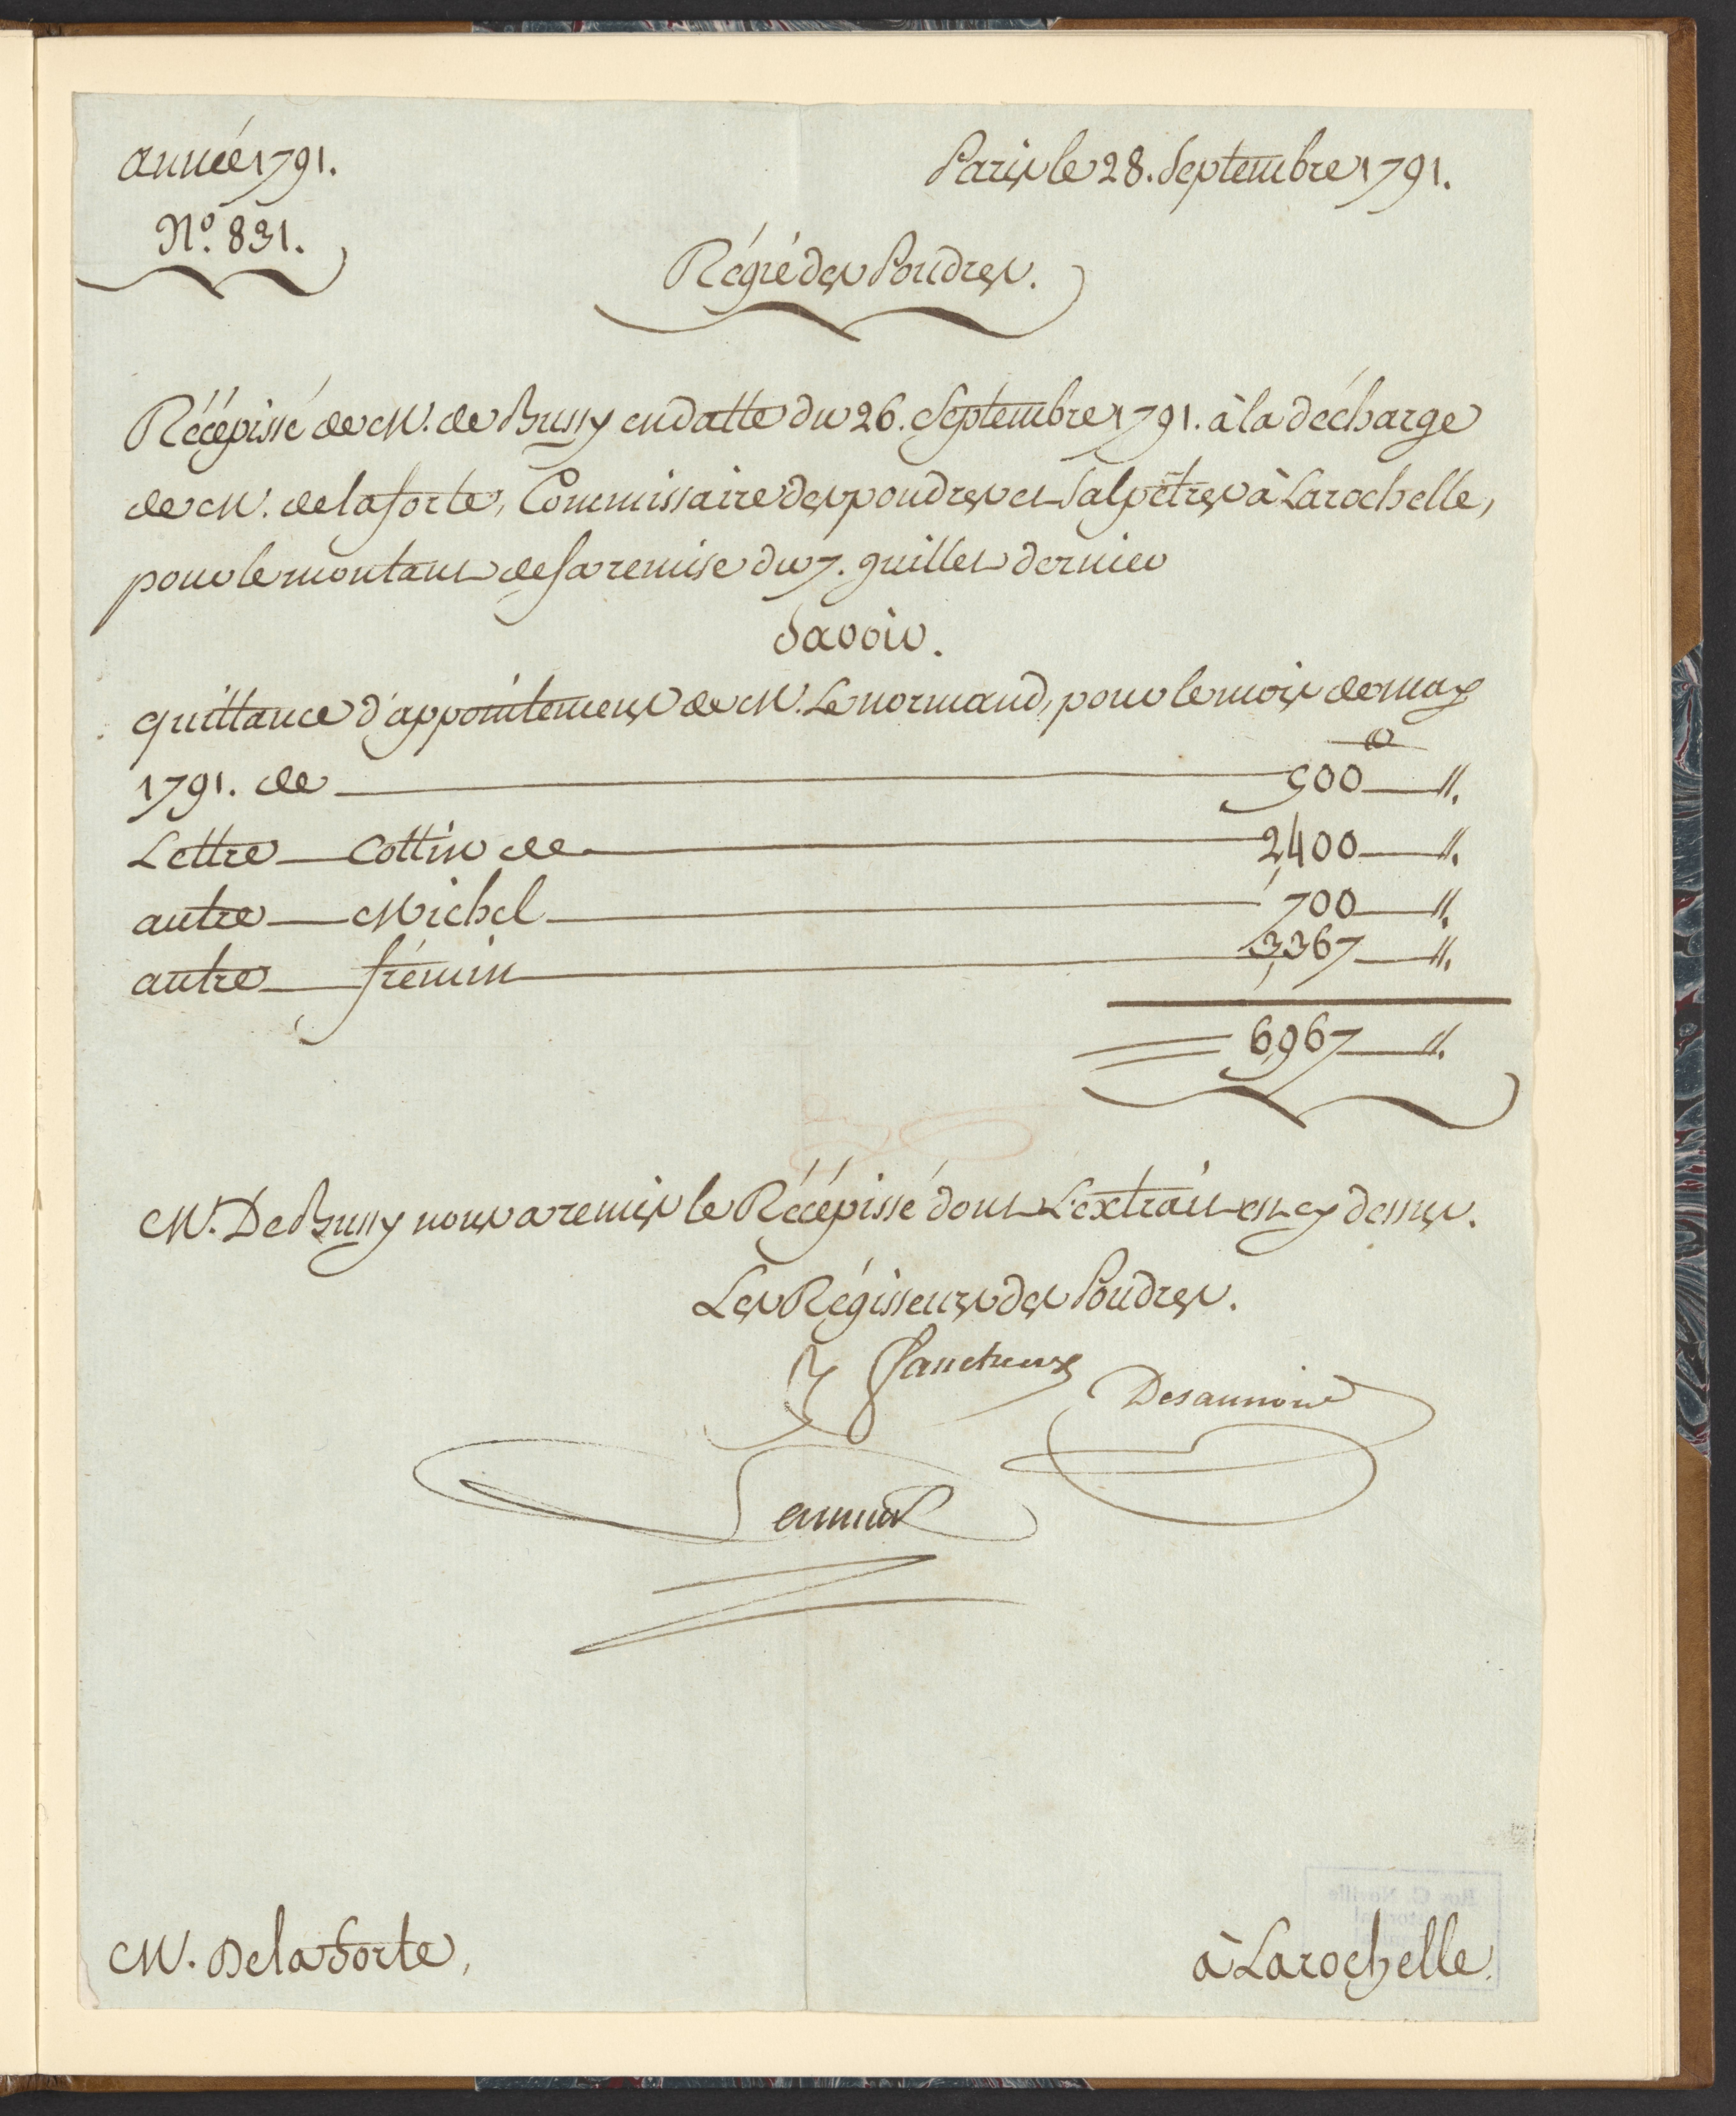 année 1791.
Paris le 28. Septembre 1791.
N.º 831.
Régie des Poudres.
Récépissé de M. de Bussy en datte du 26. Septembre 1791. à la décharge
de M. de laforte, Commissaire des poudres et Salpêtres à Larochelle,
pour le montant de sa remise du 7. Juillet dernier
Savoir.
quittance d'appointemens de M. Lenormand, pour le mois de may
1791. de 500 ₶ ".
Lettre Cottin de 2,400 ".
autre Michel 700 ".
autre frémin 3,367 ".
6,967 ".
M. De Bussy nous a remis le Récépissé dont L'extrait est cy dessus.
Les Régisseurs des Poudres.
M. Delaforte,
à Larochelle.
Roy G. Neville